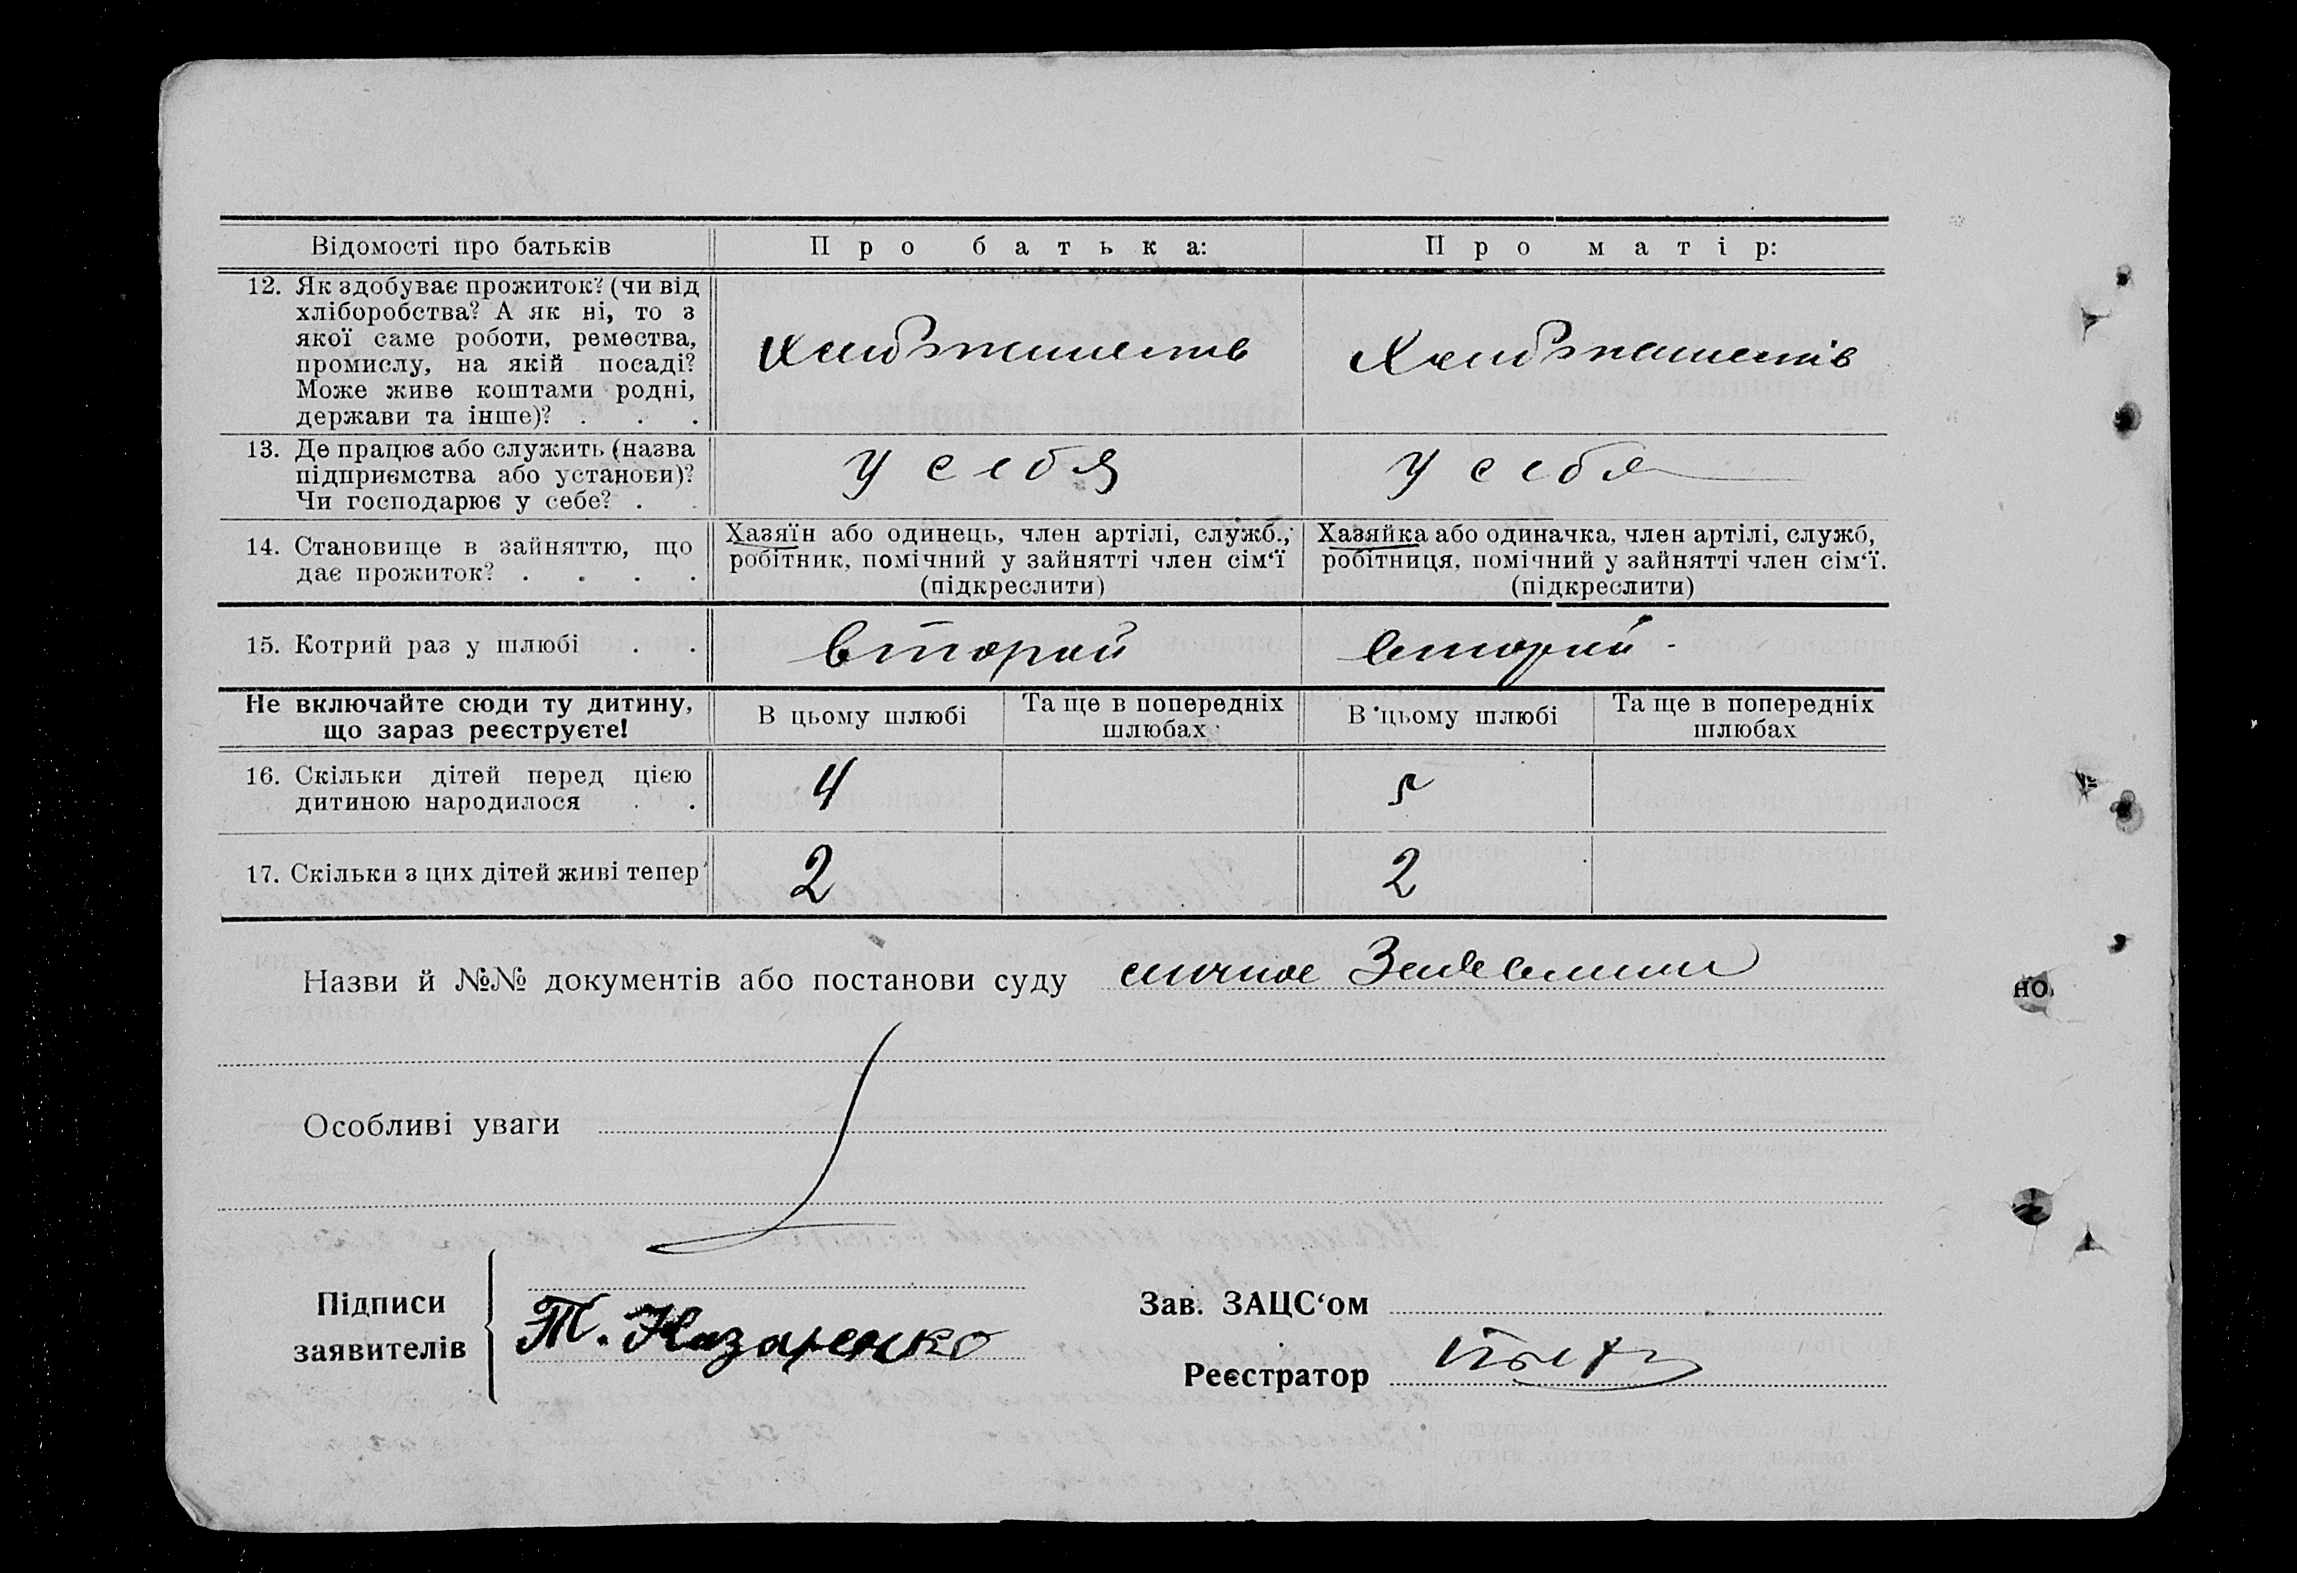 Відомості про батьків Про батька: Про матір:
12. Як здобуває прожиток? (чи від
хліборобства? А як ні, то з
якої саме роботи, ремества,
промислу, на якій посаді?
Може живе коштами родні,
держави та інше)? . . .
13. Де працює або служить (назва
підприємства або установи)?
Чи господарює у себе? . .
у себя у себя
14. Становище в зайняттю, що
дає прожиток? . . . .
Хазяїн або одинець, член артілі, служб.,
робітник, помічний у зайнятті член сім‘ї
(підкреслити)
Хазяйка або одиначка, член артілі, служб,
робітниця, помічний у зайнятті член сім‘ї.
(підкреслити)
15. Котрий раз у шлюбі . . второй второй
Не включайте сюди ту дитину,
що зараз реєструєте!
В цьому шлюбі
Та ще в попередніх
шлюбах
В цьому шлюбі
Та ще в попередніх
шлюбах
16. Скільки дітей перед цією
дитиною народилося . .
4 5
17. Скільки з цих дітей живі тепер 2 2
Назви й №№ документів або постанови суду
Особливі уваги
Підписи
заявителів
Т. Назаренко
Зав. ЗАЦС‘ом
Реєстратор
но